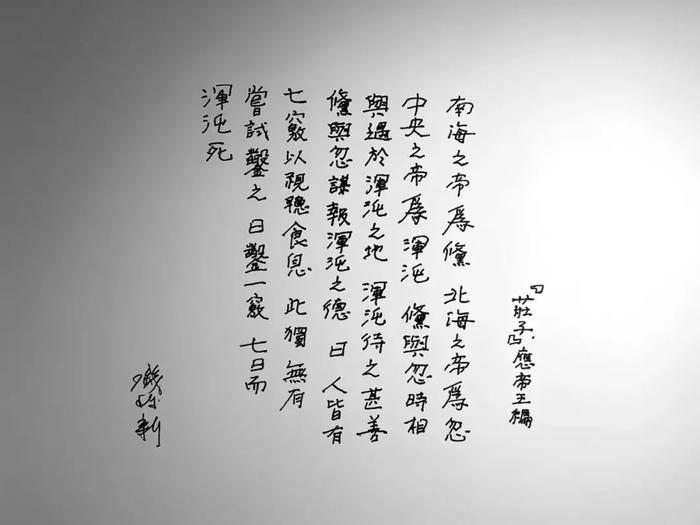 『莊子』, 應帝王編
南海之帝爲儵 北海之帝爲忽
中央之帝爲渾沌 儵與忽時相
與遇於渾沌之地 渾沌待之甚善
儵與忽謀報渾沌之德 曰 人皆有
七竅以視聽食息 此獨無有
嘗試鑿之 日鑿一竅 七日而
渾沌死
磯崎新